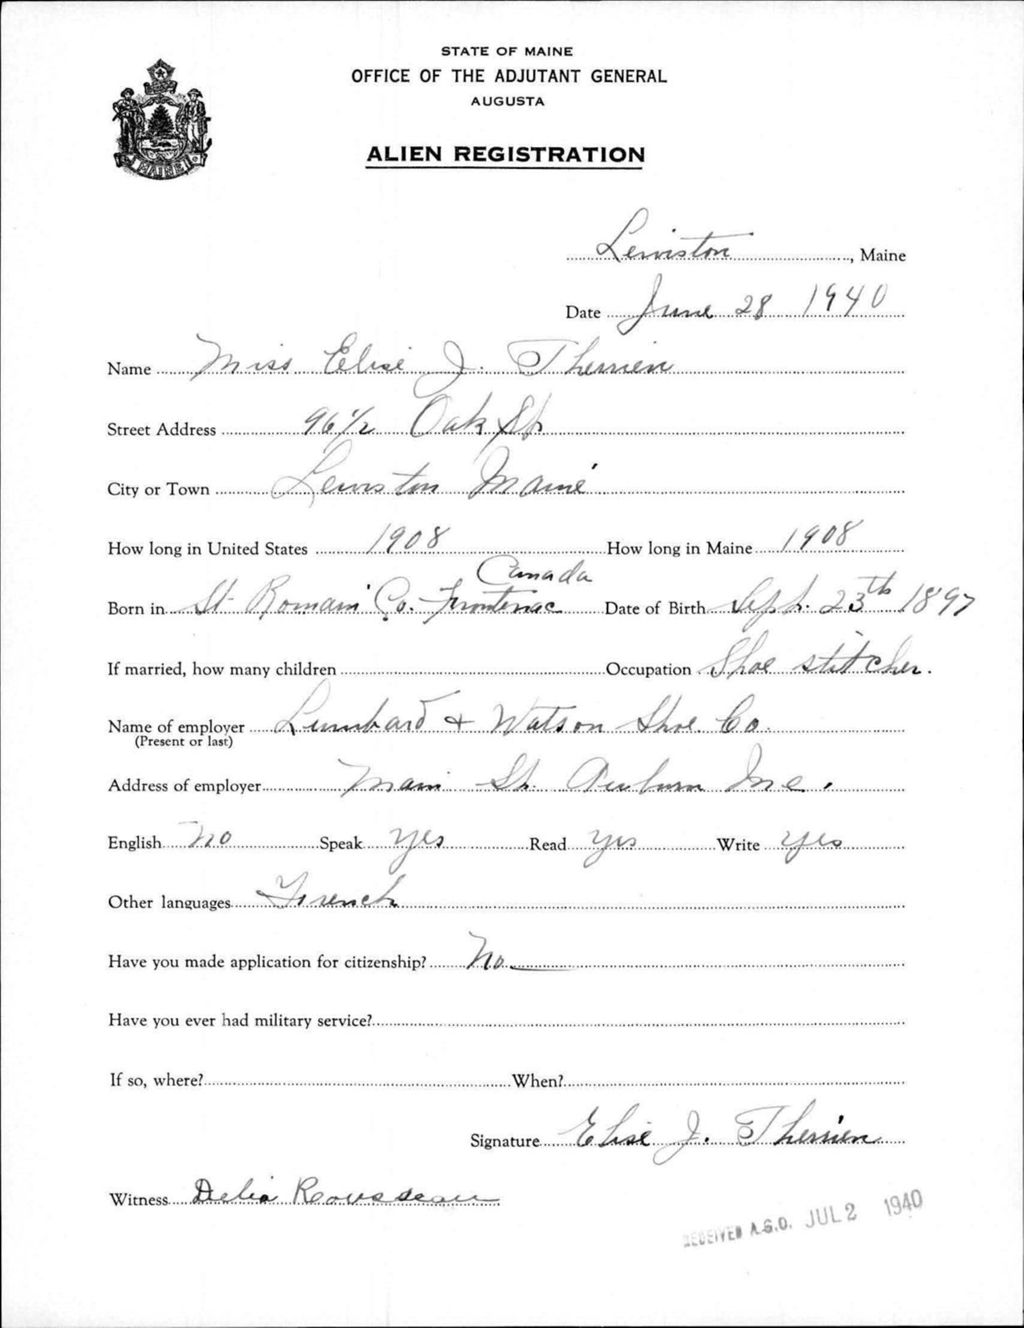 STATE OF MAINE
OFFICE OF THE ADJUTANT GENERAL
AUGUSTA
MAINE
ALIEN REGISTRATION
Lewiston, Maine
Date June 28 1940
Name Miss Elise J. Therrien
Street Address 96 1/2 Oak St.
City or Town Lewiston Maine
How long in United States 1908 How long in Maine 1908
Canada
Born in St. Romain Co. Frontenac Date of Birth Sept. 23th 1897
If married, how many children Occupation Shoe stitcher.
Name of employer Lumbard + Watson Shoe Co.
(Present or last)
Address of employer Main St. Auburn Me.
English No Speak yes Read yes Write yes
Other languages French
Have you made application for citizenship? No
Have you ever had military service?
If so, where? When?
Signature Elise J. Therrien
Witness Delia Rousseau
RECEIVED A.G.O. JUL 2 1940